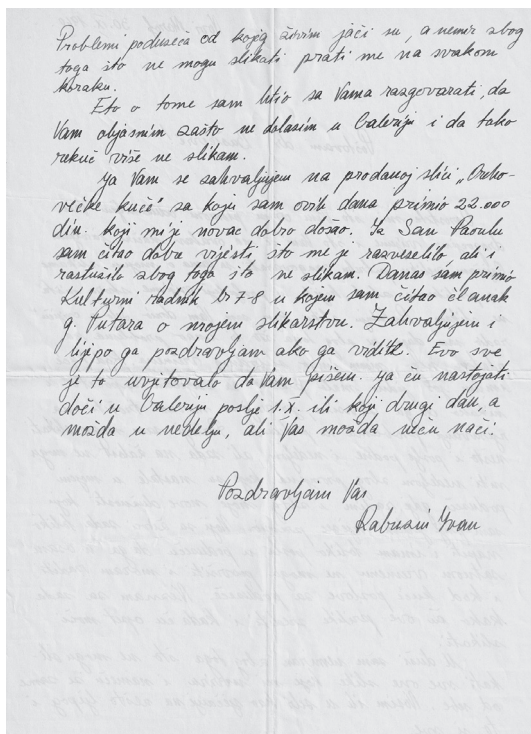 Problemi poduseća od kojeg živim jači su, a nemir zbog
toga što ne mogu slikati prati me na svakom
koraku.
Eto o tome sam htio sa Vama razgovarati, da
Vam objasnim zašto ne dolazim u Galeriju i da tako
rekuć više ne slikam.
Ja Vam se zahvaljujem na prodanoj slici „Oreho-
večke kuće" za koju sam ovih dana primio 22.000
din. koji mi je novac dobro došao. Iz San Paoula
sam čitao dobre vijesti što me je razveselilo, ali i
rastužilo zbog toga što ne slikam. Danas sam primio
Kulturni radnik br 7-8 u kojem sam čitao članak
g. Putara o mojem slikarstvu. Zahvaljujem i
lijepo ga pozdravljam ako ga vidite. Evo sve
je to uvjetovalo da Vam pišem. Ja ću nastojati
doći u Galeriju poslje 1.X. ili koji drugi dan, a
možda u nedelju, ali Vas možda neću naći.
Pozdravljam Vas
Rabuzin Ivan